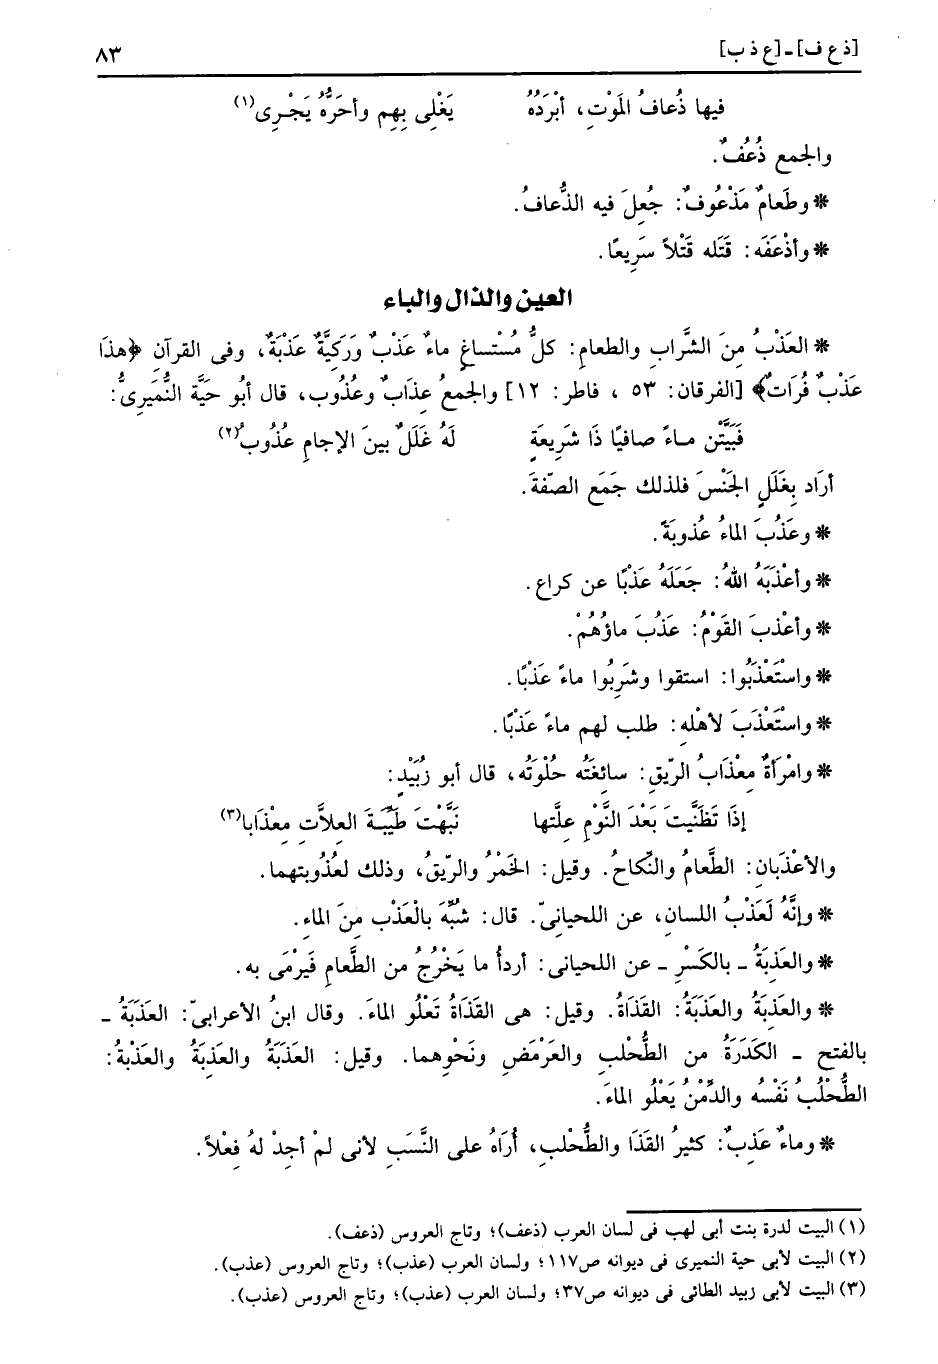 [ذ ع ف] ـ [ع ذ ب] ٨٣
فيها ذُعافُ المَوْتِ، أبْرَدُهُ يَغْلِى بِهِم وأحَرُّهُ يَجْرِى(١)
والجمع ذُعُفٌ.
* وطَعامٌ مَذْعُوفٌ: جُعِلَ فيه الذُّعافُ.
* وأذْعَفَه: قَتَله قَتْلاً سَرِيعًا.
العين والذال والباء
* العَذْبُ مِنَ الشَّرابِ والطعامِ: كلُّ مُسْتساغٍ ماءٌ عَذْبٌ وَرَكِيَّةٌ عَذْبَةٌ، وفى القرآن ﴿هذَا
عَذْبٌ فُرَاتٌ﴾ [الفرقان: ٥٣ ، فاطر: ١٢] والجمعُ عِذَابٌ وعُذُوب، قال أبُو حَيَّة النُّمَيرِىُّ:
فَبَيَّتْن مـاءً صافيًا ذَا شَرِيعَةٍ لَهُ غَلَلٌ بينَ الإجامِ عُذُوبُ(٢)
أرَاد بِغَلَلٍ الجَنْسَ فلذلك جَمَع الصّفةَ.
* وعَذُبَ الماءُ عُذوبَةً.
* وأعْذَبَهُ اللهُ: جَعَلَهُ عَذْبًا عن كراع.
* وأعْذبَ القَوْمُ: عَذُبَ ماؤُهُمْ.
* واستَعْذَبُوا: استقوا وشَرِبُوا ماءً عَذْبًا.
* واسْتَعْذَبَ لأهْلِه: طلب لهم ماءً عَذْبًا.
* وامْرأةٌ مِعْذَابُ الرّيقِ: سائِغَتُه حُلْوَتُه، قال أبو زُبَيْدٍ:
إذَا تَظَنَّيتَ بَعْدَ النَّوْمِ عِلَّتها نَبَّهْتَ طَيِّبَـةَ العِلاَّتِ مِعْذَابا(٣)
والأعْذَبانِ: الطَّعامُ والنِّكاحُ. وقيل: الخَمْرُ والرّيقُ، وذلك لعُذُوبتهما.
* وإنَّهُ لَعَذْبُ اللسانِ، عن اللحيانىّ. قال: شُبِّهَ بالْعَذْبِ مِنَ الماءِ.
* والعَذِبَةُ ـ بالكَسْرِ ـ عن اللحيانى: أردأُ ما يَخْرُجُ من الطَّعامِ فَيرْمَى به.
* والعَذِبَةُ والعَذَبَةُ: القَذَاةُ. وقيل: هى القَذَاةُ تَعْلُو الماءَ. وقال ابنُ الأعرابىّ: العَذَبَةُ ـ
بالفتح ـ الكَدَرَةُ من الطُّحْلبِ والعَرْمَضِ ونَحْوِهما. وقيل: العَذَبَةُ والعَذِبَةُ والعَذْبةُ:
الطُّحْلُبُ نَفْسُه والدِّمْنُ يَعْلُو الماءَ.
* وماءٌ عَذِبٌ: كثيرُ القَذَا والطُّحْلبِ، أُرَاهُ على النَّسَبِ لأنى لمْ أجِدْ لهُ فِعْلاً.
(١) البيت لدرة بنت أبى لهب فى لسان العرب (ذعف)؛ وتاج العروس (ذعف).
(٢) البيت لأبى حية النميرى فى ديوانه ص١١٧؛ ولسان العرب (عذب)؛ وتاج العروس (عذب).
(٣) البيت لأبى زبيد الطائى فى ديوانه ص٣٧؛ ولسان العرب (عذب)؛ وتاج العروس (عذب).